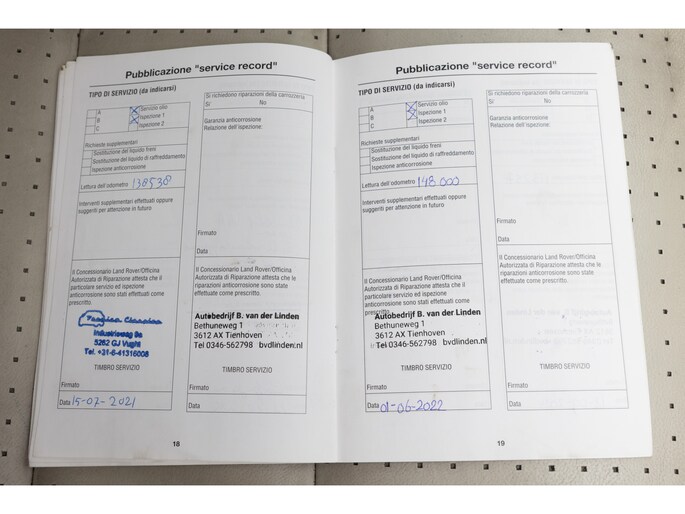 Pubblicazione "service record"
TIPO DI SERVIZIO (da indicarsi)
A
B
C
Servizio olio
Ispezione 1
Ispezione 2
Richieste supplementari
Sostituzione del liquido freni
Sostituzione del liquido di raffreddamento
Ispezione anticorrosione
Lettura dell'odometro 138538
Interventi supplementari effettuati oppure
suggeriti per attenzione in futuro
Il Concessionario Land Rover/Officina
Autorizzata di Riparazione attesta che il
particolare servizio ed ispezione
anticorrosione sono stati effettuati come
prescritto.
Industrieweg 9e
5262 GJ Vught
Tel. +31-6-41316008
TIMBRO SERVIZIO
Firmato
Data 15-07-2021
Si richiedono riparazioni della carrozzeria
Sí No
Garanzia anticorrosione
Relazione dell'ispezione:
Firmato
Data
Il Concessionario Land Rover/Officina
Autorizzata di Riparazione attesta che le
riparazioni anticorrosione sono state
effettuate come prescritto.
Autobedrijf B. van der Linden
Bethuneweg 1
3612 AX Tienhoven
Tel 0346-562798 bvdlinden.nl
TIMBRO SERVIZIO
Firmato
Data
18
Pubblicazione "service record"
TIPO DI SERVIZIO (da indicarsi)
A
B
C
Servizio olio
Ispezione 1
Ispezione 2
Richieste supplementari
Sostituzione del liquido freni
Sostituzione del liquido di raffreddamento
Ispezione anticorrosione
Lettura dell'odometro 148000
Interventi supplementari effettuati oppure
suggeriti per attenzione in futuro
Il Concessionario Land Rover/Officina
Autorizzata di Riparazione attesta che il
particolare servizio ed ispezione
anticorrosione sono stati effettuati come
prescritto.
Autobedrijf B. van der Linden
Bethuneweg 1
3612 AX Tienhoven
Tel 0346-562798 bvdlinden.nl
TIMBRO SERVIZIO
Firmato
Data 01-06-2022
Si richiedono riparazioni della carrozzeria
Sí No
Garanzia anticorrosione
Relazione dell'ispezione:
Firmato
Data
Il Concessionario Land Rover/Officina
Autorizzata di Riparazione attesta che le
riparazioni anticorrosione sono state
effettuate come prescritto.
TIMBRO SERVIZIO
Firmato
Data
19